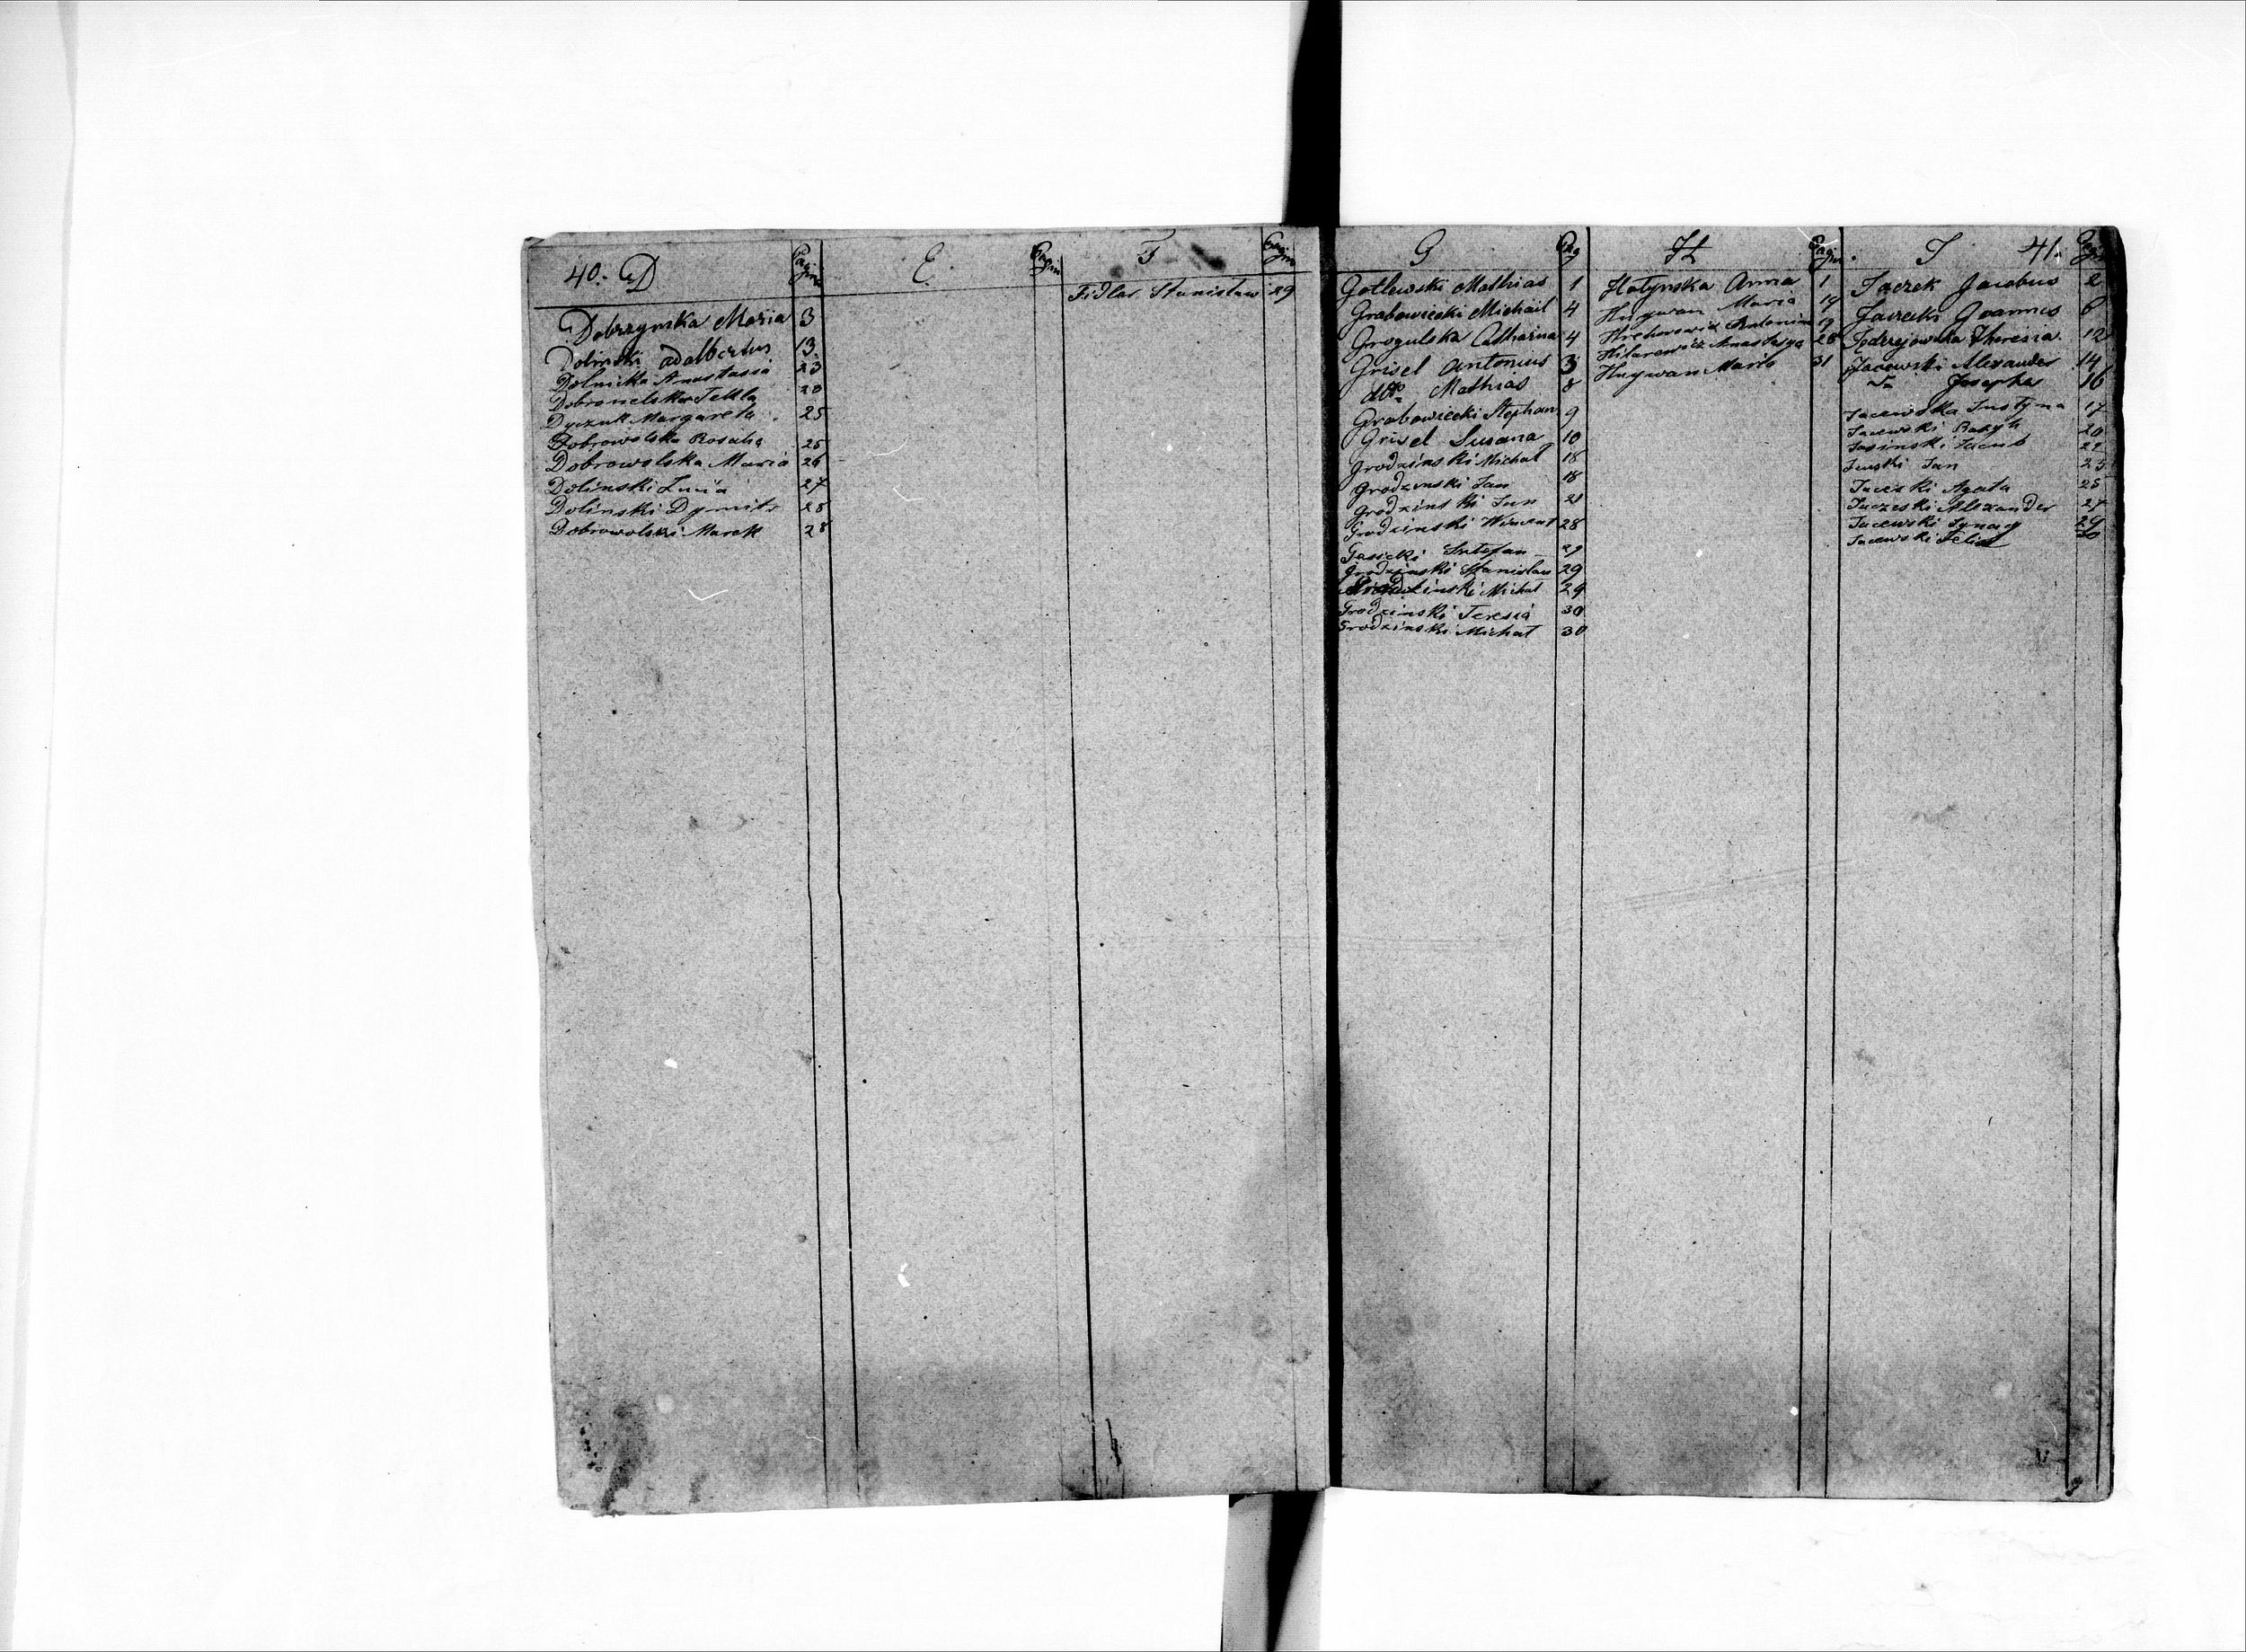 40. D
Pagina
Dobrzynska Maria 3
Dolinski Adalbertus 13
Dolnicka Anastasia 23
Tekla 20
Dyczuk Margareta 25
Dobrowolska Rosalia 25
Dobrowolska Maria 26
Dolinski Lucia 27
Dolinski Dymitr 28
Dobrowolski Marek 28
E.
Pagin
F
Pagin
Fidlar Stanisław 29
G
Pag
Gotlewski Mathias 1
Grabowiecki Michail 4
Grogulska Catharina 4
Grisel Antonius 3
dtto Mathias 8
Grabowiecki Stephan 9
Grisel Susana 10
Grodzinski Michał 18
Grodzinski Jan 18
Grodzinski Jan 21
Grodzinski Wincent 28
Gasicki Sztefan 29
Grodzinski Stanislau 29
Grodzinski Michał 29
Grodzinski Teresia 30
Grodzinski Michał 30
H
Pagin
Hołynska Anna 1
Hugwan Maria 19
Hrehorowicz Antonina 19
Hilarowicz Anastazya 28
Hugwan Mario 31
J 41.
Pagin
Jaczek Jacobus 2
Jacecki Joannes 6
Jedrzejowska Theresia 12
Jacewski Alexander 14
Josepha 16
Jacewska Justyna 17
Jacewski Bazyli 20
Jasinski Jacub 22
Jan 25
Jaceski Agata 25
Jaczeski Alexander 27
Jacewski Ignacy 29
Jacewski Felix 30